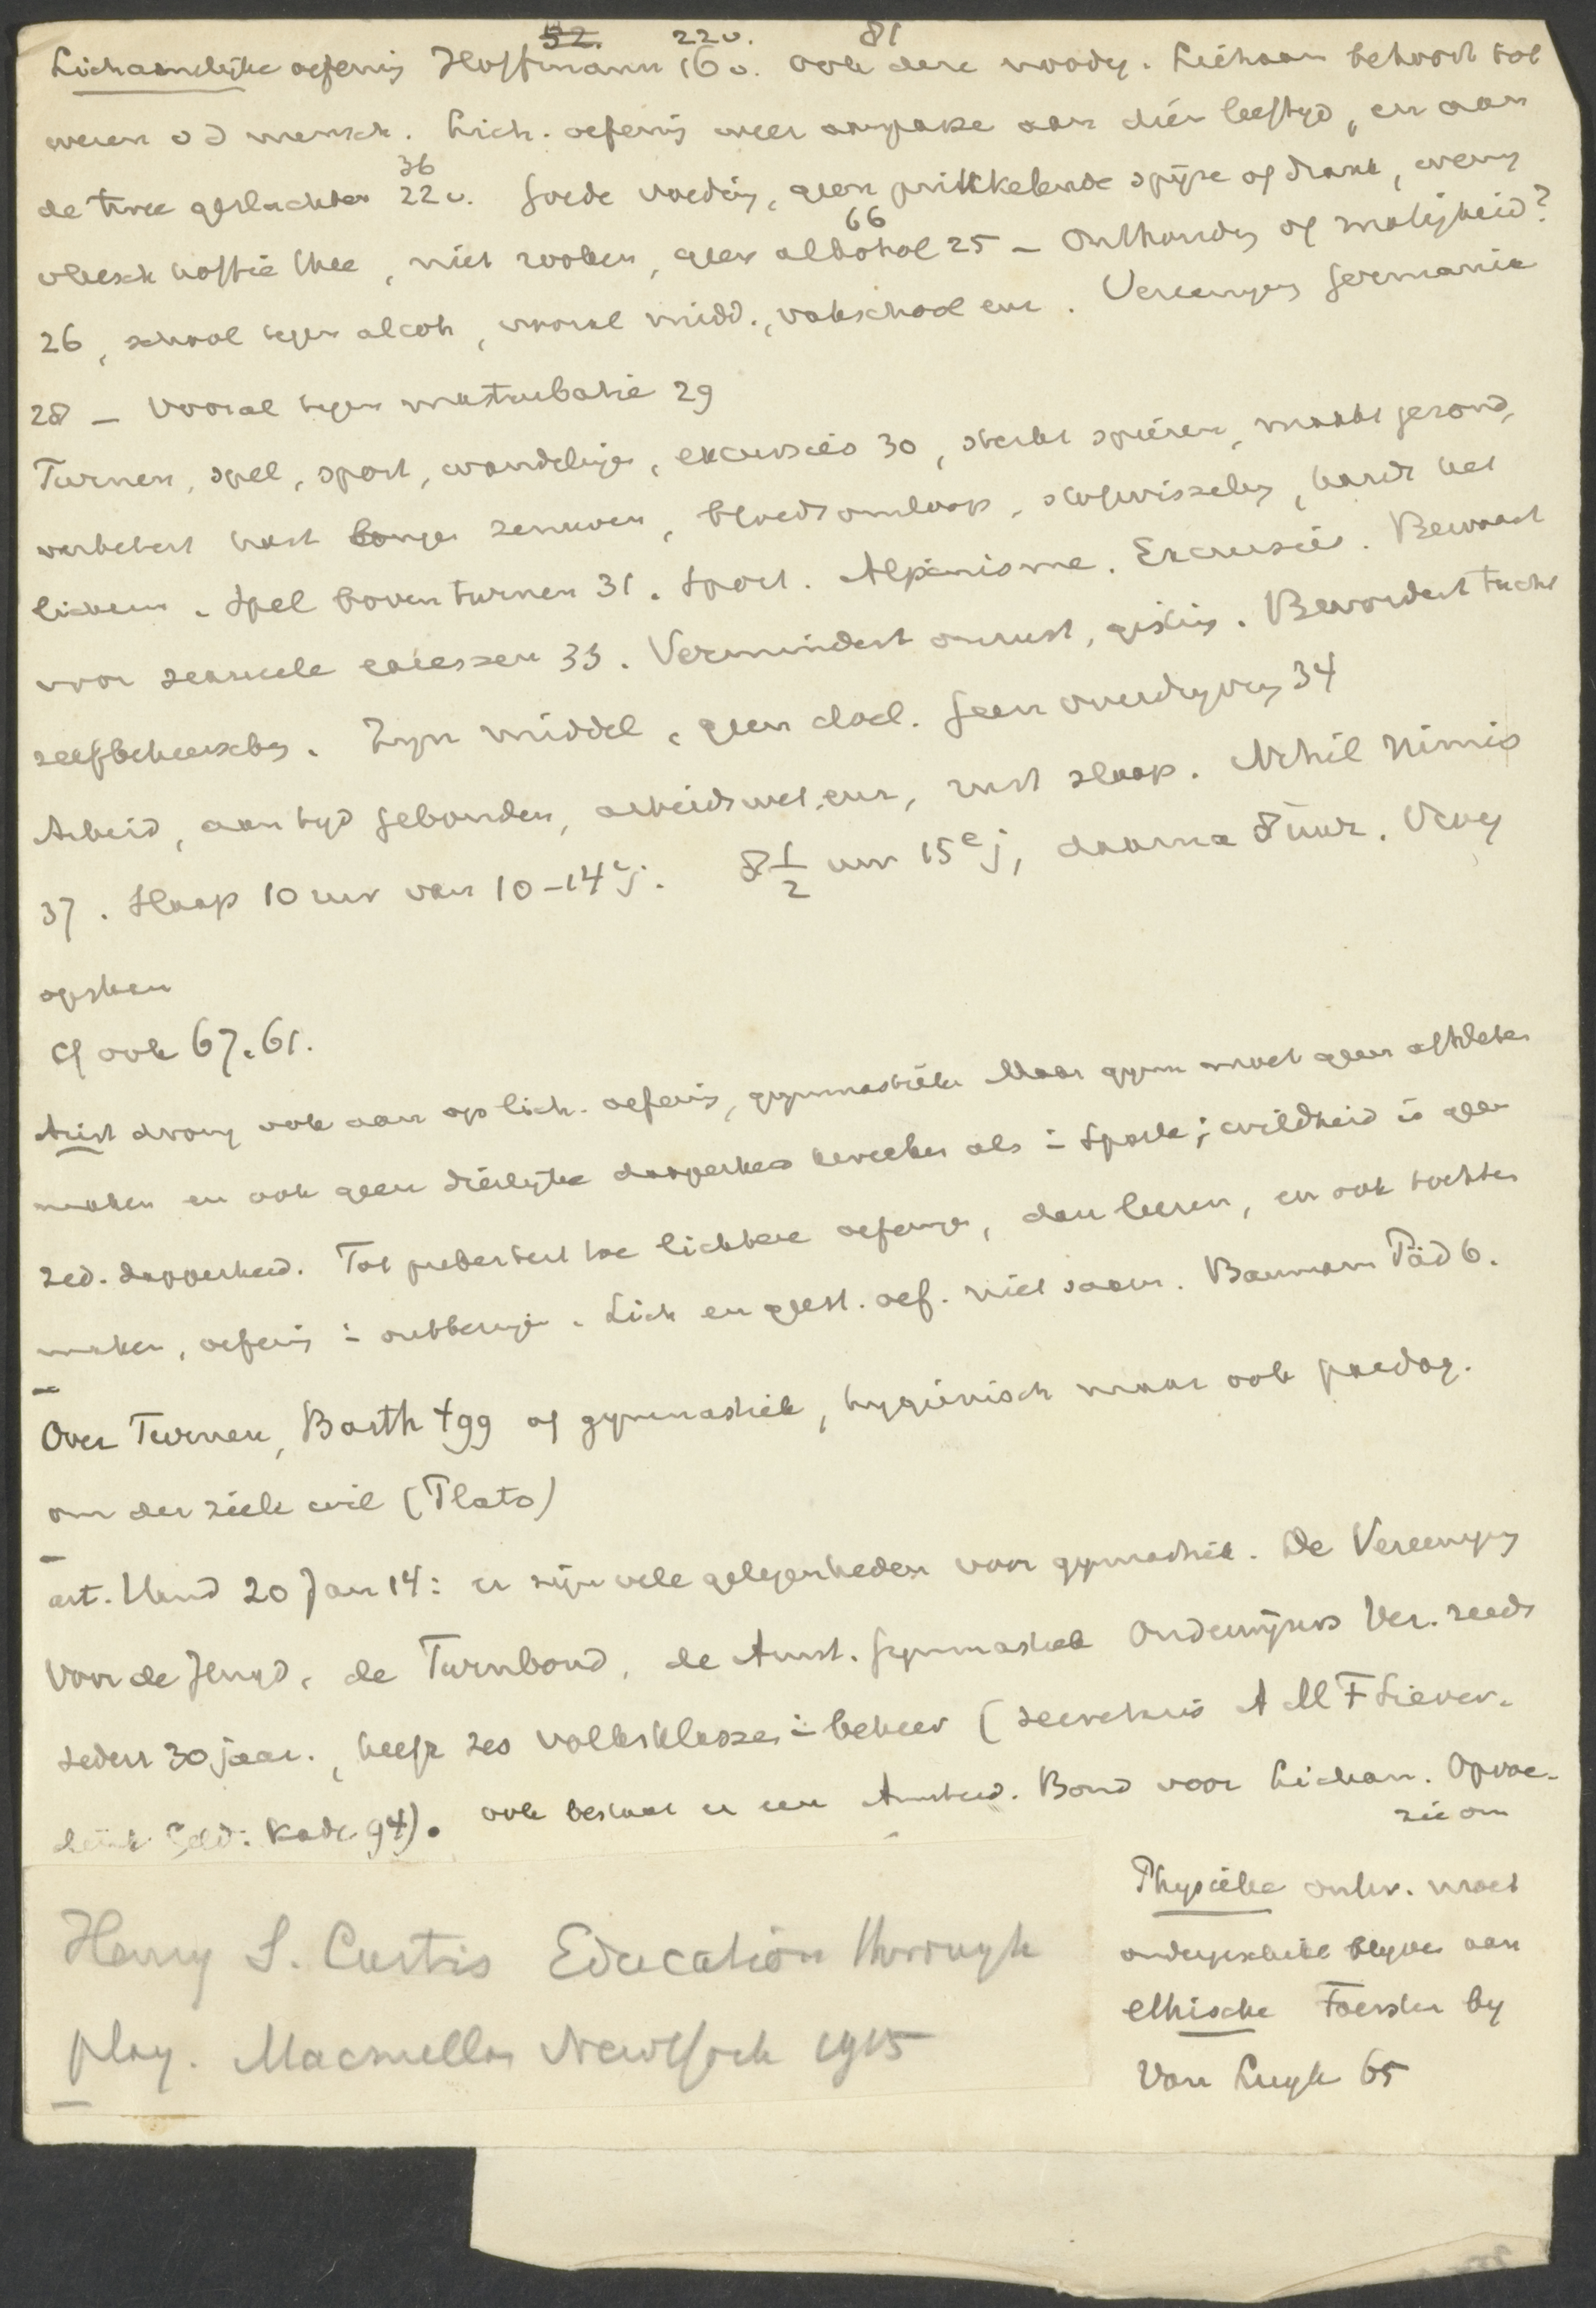 52. 22v. 81
Lichamelijke oefening Hoffmann 16v. ook deze noodig. Lichaam behoort tot
wezen v d mensch. Lich. oefening weer aanpasse aan dien leeftyd, en aan
36
de twee geslachten 22v. Goede voeding, geen prikkelende spijze of drank, weinig
66
vleesch koffie thee, niet rooken, geen alkohol 25 – Onthouding of matigheid?
26, school tegen alcoh, vooral midd., vakschool enz. Vereeniging Germania
28 – Vooral tegen masturbatie 29
Turnen, spel, sport, wandeling, excursies 30, sterkt spieren, maakt gezond,
verbetert hart longen zenuwen, bloedsomloop, stofwisseling, hardt het
lichaam. Spel boven turnen 31. Sport. Alpinisme. Excursies. Bewaart
voor sexueele excessen 33. Vermindert onrust, gisting. Bevordert tucht
zelfbeheersching. Zyn middel, geen doel. Geen overdryving 34
Arbeid, aan tyd gebonden, arbeidswet, enz, rust slaap. Nihil nimis
37. Slaap 10 uur van 10–14e j. 8 1/2 uur 15e j, daarna 8 uur. Vroeg
opstaan
cf ook 67. 61.
Arist drong ook aan op lich. oefening, gymnastiek. Maar gymn moet geen athleten
maken en ook geen dierlijke dapperheid kweeken als i Sparta; wildheid is geen
zed. dapperheid. Tot puberteit toe lichtere oefening, dan leeren, en ook tochten
maken, oefening i ontbering. Lich en geest. oef. niet saam. Baumann Päd 6.
Over Turnen, Barth 499 of gymnastiek, hygiënisch maar ook paedag.
om der ziele wil (Plato)
art. Hand 20 Jan 14: er zijn vele gelegenheden voor gymnastiek. De Vereeniging
Voor de Jeugd, de Turnbond, de Amst. Gymnastiek Onderwijzers Ver. reeds
sedert 30 jaar, heeft zes volksklassen i beheer (secretaris A M F Siever.
Geld. kade 94). ook bestaat er een Amsterd. Bond voor Licham. Opvoe-
zie om
Henry S. Curtis Education through
play. Macmillan New York 1915
Physieke ontw. moet
ondergeschikt blyven aan
ethische Foerster by
Van Luyk 65